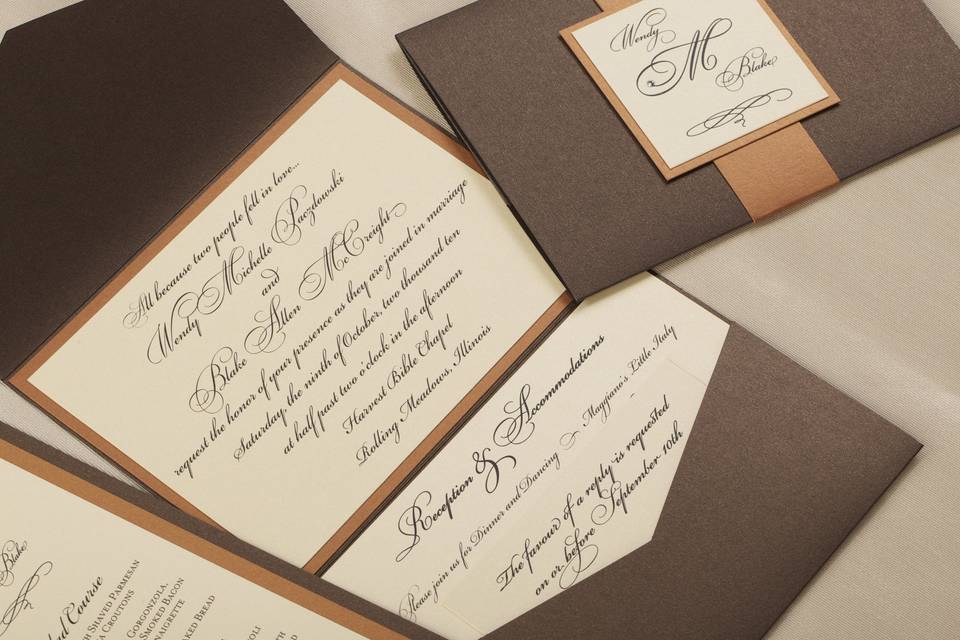 All because two people fell in love...
Wendy Michelle Paczdowski
and
Blake Allen McCreight
request the honor of your presence as they are joined in marriage
Saturday, the ninth of October, two thousand ten
at half past two o'clock in the afternoon
Harvest Bible Chapel
Rolling Meadows, Illinois
Wendy
M
Blake
Reception & Accommodations
Please join us for Dinner and Dancing - Maggiano's Little Italy
The favour of a reply is requested
on or before September 10th
Blake
Course
Shaved Parmesan
Croutons
Gorgonzola,
Smoked Bacon
Bread